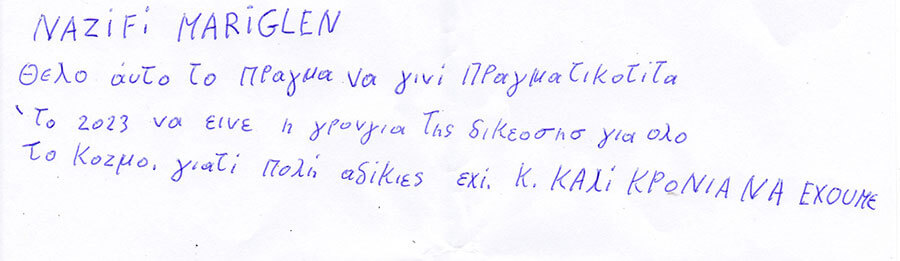 NAZiFi MARiGLEN
Θελο άυτο το πραγμα να γινί πραγματικοτίτα
Το 2023 να εινε η γρονγια της δικεοσησ για ολο
το Κοzμο. γιατί πολή αδίκιες εχί. Κ. ΚΑλί ΚΡΟΝΙΑ ΝΑ ΕΧΟUΜΕ